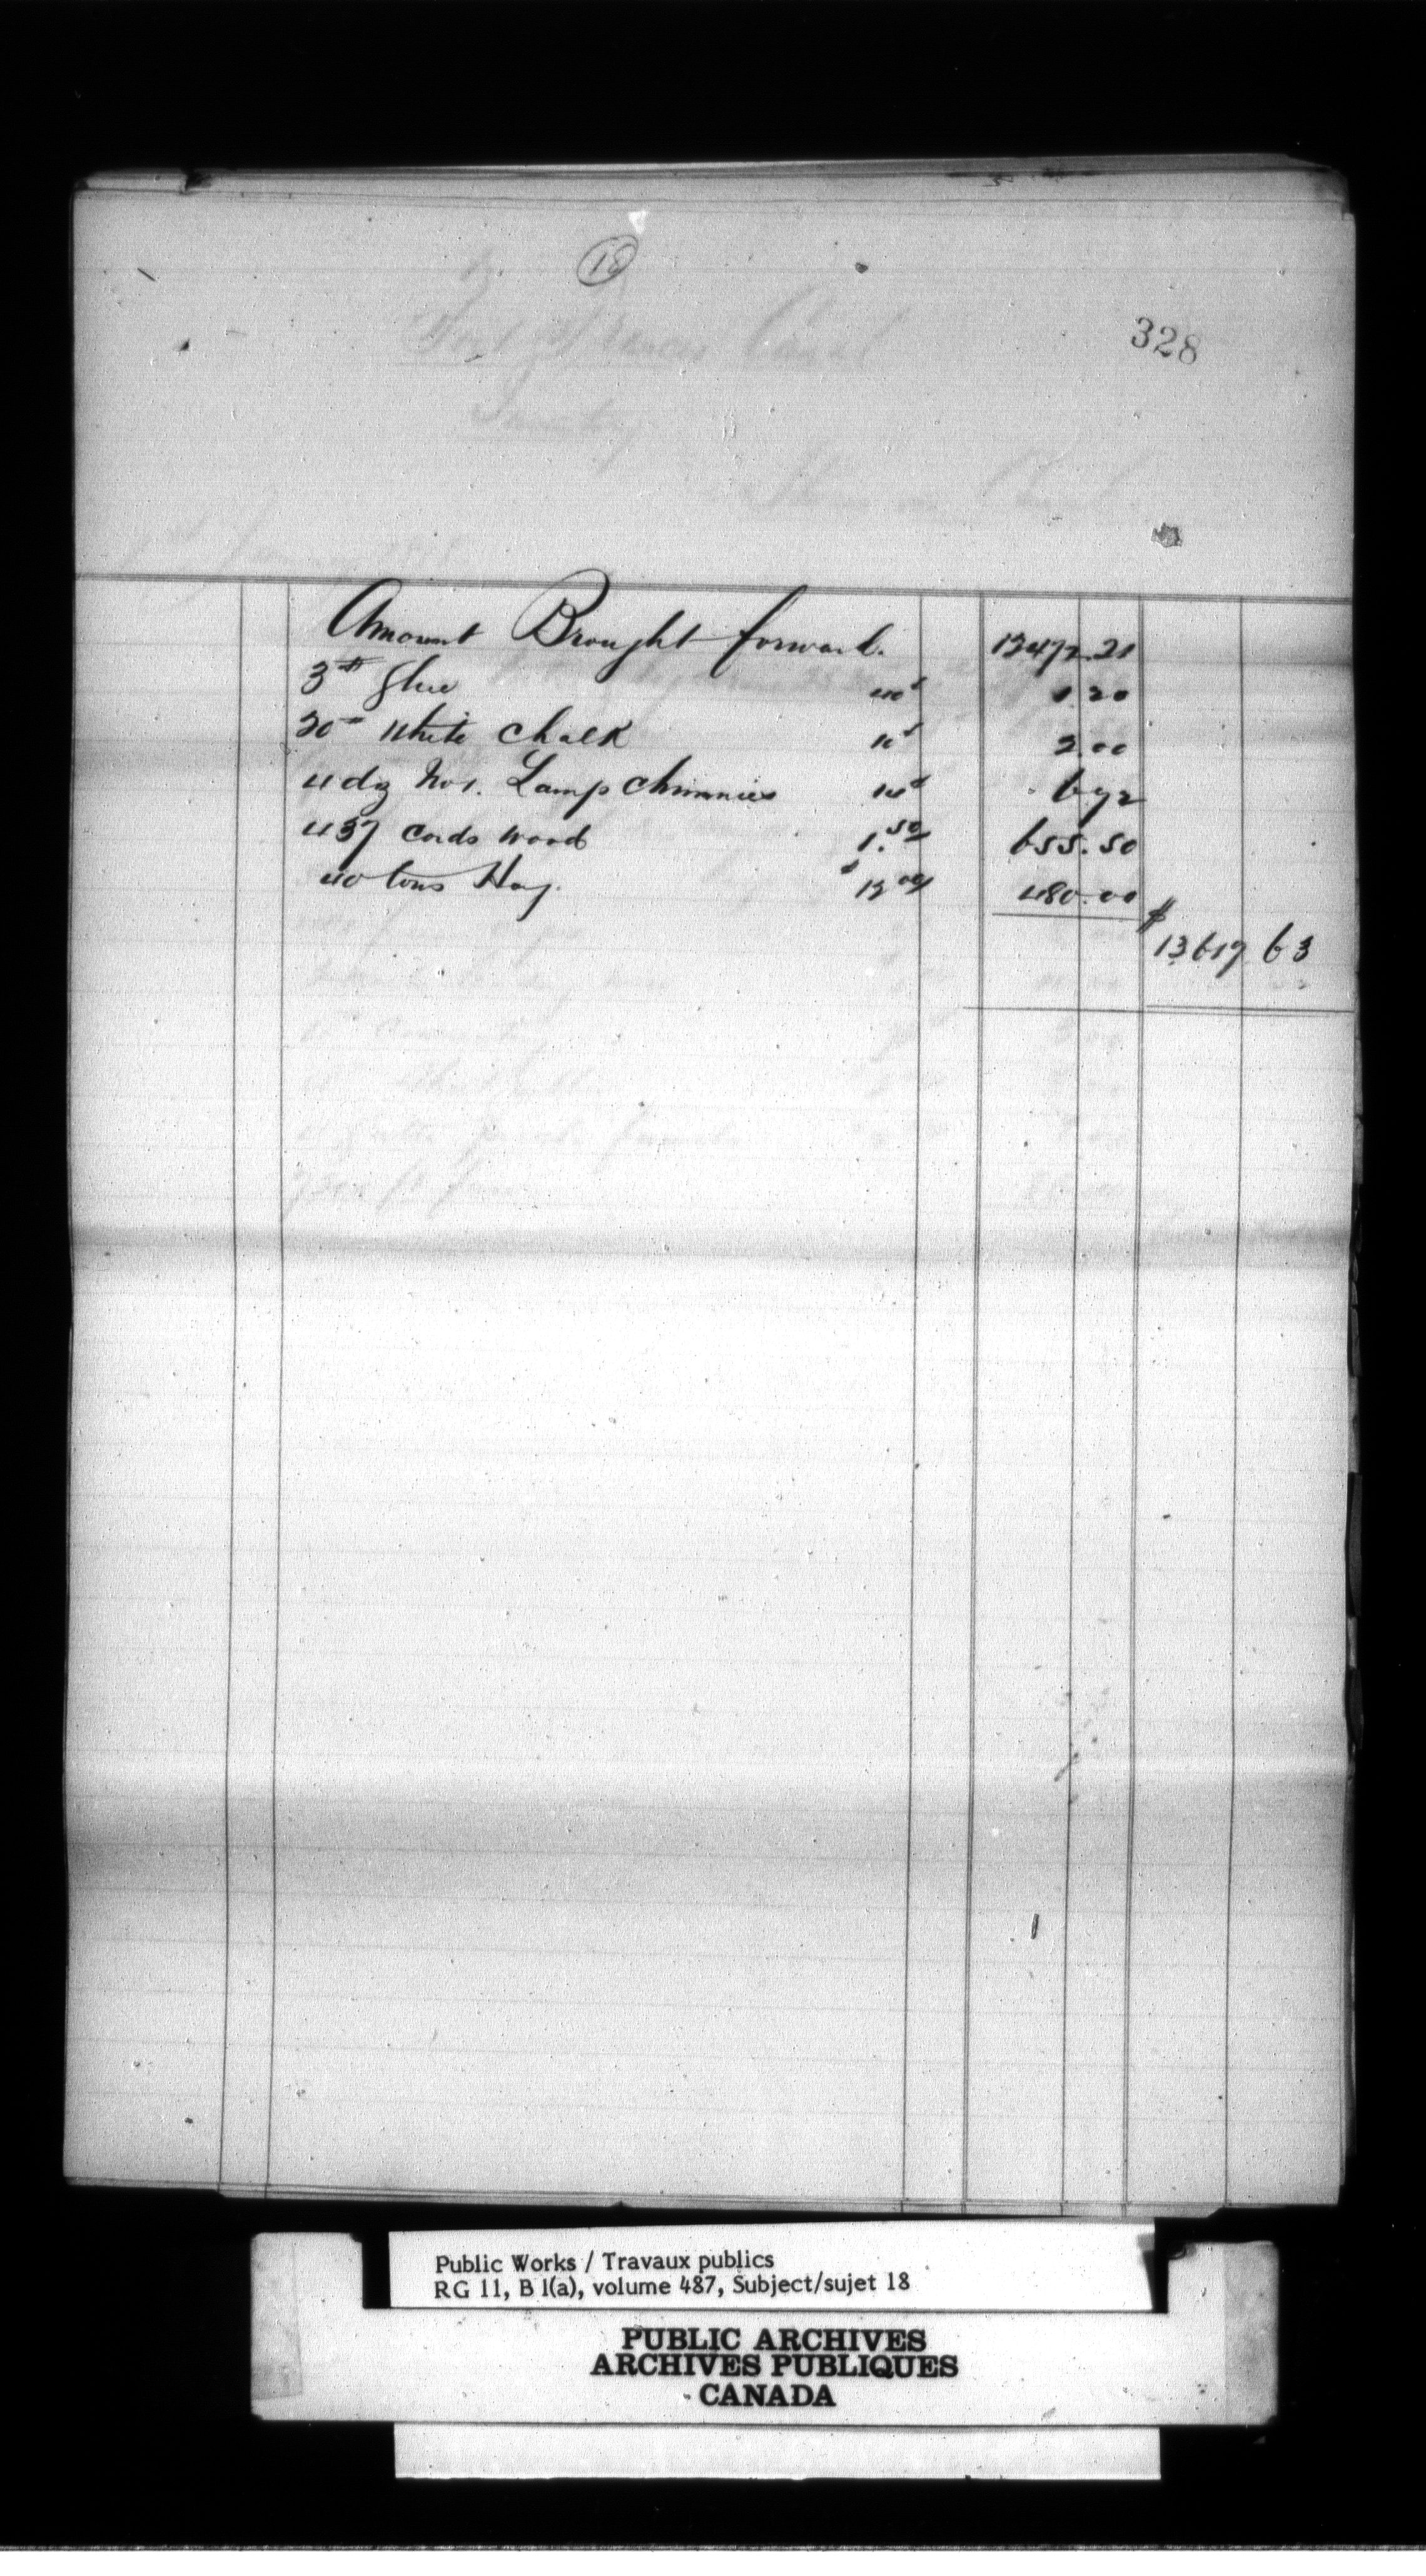 18
328
Amount Brought forward. 12472.21
3 lb Glue 40¢ 1.20
20 " White Chalk 10¢ 2.00
4 dz No 1. Lamp Chimnies 14¢ 6 72
437 Cords Wood 1.50 655.50
40 tons Hay. $12 00 480.00
$13617 63
Public Works / Travaux publics
RG 11, B 1(a), volume 487, Subject/sujet 18
PUBLIC ARCHIVES
ARCHIVES PUBLIQUES
CANADA